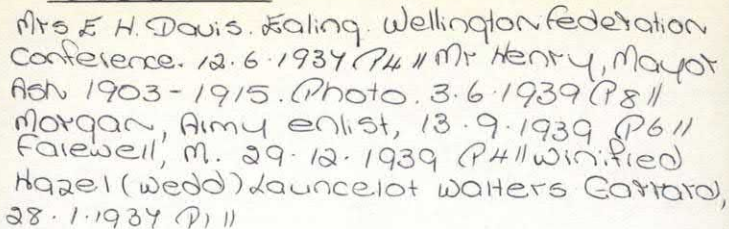 Mrs E H. Davis. Ealing. Wellington Federation
Conference. 12.6.1937 P4 // Mr Henry, Mayor
Ash 1903-1915. Photo. 3.6.1939 P8 //
Morgan, Army enlist, 13.9.1939 P6 //
Farewell, M. 29.12.1939 P4 // Winifred
Hazel (wedd) Launcelot Walters Garrard,
28.1.1937 P1 //